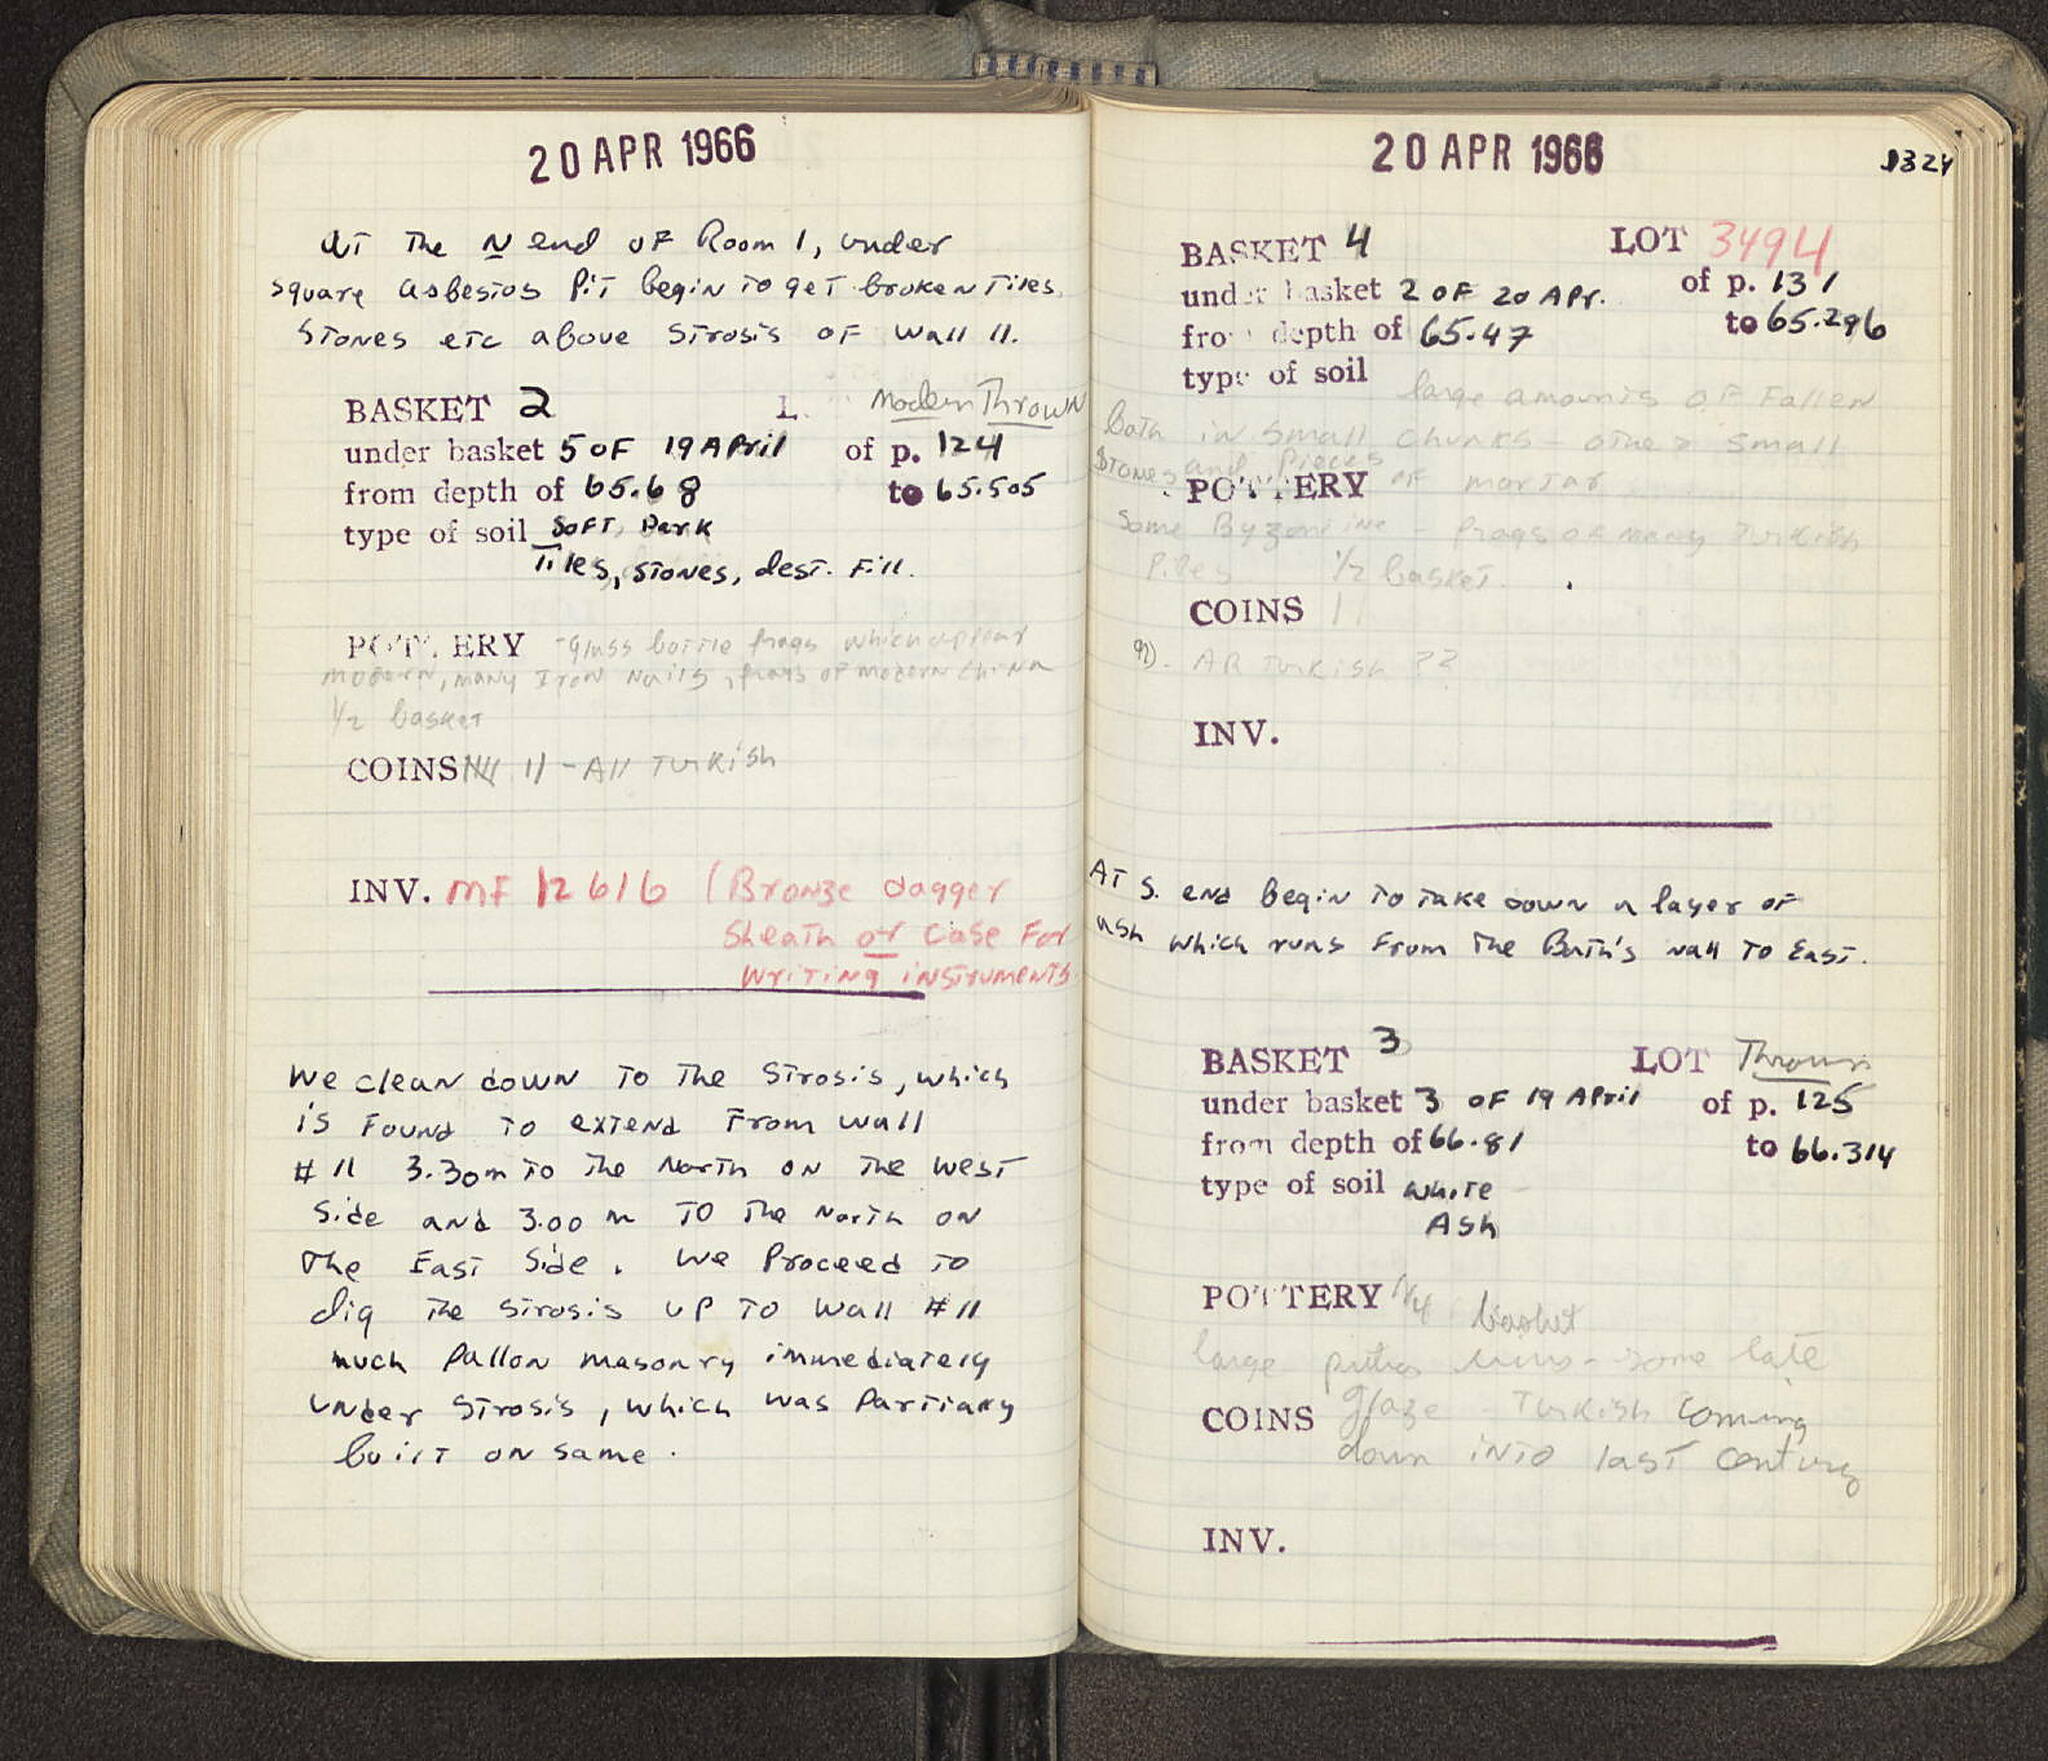 20 APR 1966
At The N end of Room 1, under
square asbestos Pit begin to get broken Tiles,
Stones etc above Strosis of Wall 11.
BASKET 2 L. Modern Thrown
under basket 5 of 19 April of p. 124
from depth of 65.68 to 65.505
type of soil Soft, Dark
Tiles, stones, dest. Fill.
POTTERY - glass bottle frags which appear
modern, many Iron Nails, frags of modern china
1/2 basket
COINS 11 - All Turkish
INV. MF 12616 (Bronze dagger
Sheath or case For
writing instruments
We clean down to The Strosis, which
is Found to extend From wall
# 11 3.30m to the North on the West
Side and 3.00 m to the North on
The East Side. We Proceed to
dig the strosis up to Wall # 11
much fallon masonry immediately
under Strosis, which was Partially
built on same.
20 APR 1966
BASKET 4 LOT 3494
under basket 2 of 20 Apr. of p. 131
from depth of 65.47 to 65.296
type of soil
large amounts of Fallen
bath in small chunks - other small
stones and pieces
POTTERY of mortar
Some Byzantine - frags of many Turkish
Pipes 1/2 basket.
COINS 1
92). AR Turkish ??
INV.
At S. end begin to take down a layer of
ash which runs From The Bath's wall to East.
BASKET 3 LOT Thrown
under basket 3 of 19 April of p. 125
from depth of 66.81 to 66.314
type of soil white
Ash
POTTERY 1/4 basket
large - some late
COINS glaze - Turkish coming
down into last century
INV.